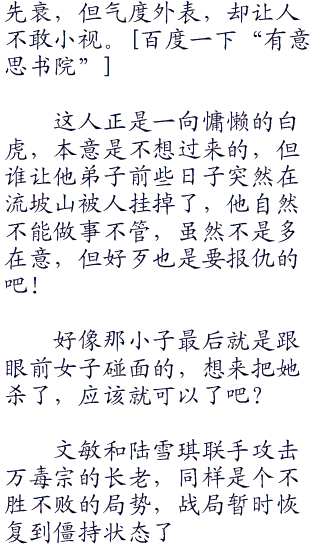 先衰，但气度外表，却让人
不敢小视。[百度一下“有意
思书院”]
这人正是一向慵懒的白
虎，本意是不想过来的，但
谁让他弟子前些日子突然在
流坡山被人挂掉了，他自然
不能做事不管，虽然不是多
在意，但好歹也是要报仇的
吧！
好像那小子最后就是跟
眼前女子碰面的，想来把她
杀了，应该就可以了吧？
文敏和陆雪琪联手攻击
万毒宗的长老，同样是个不
胜不败的局势，战局暂时恢
复到僵持状态了